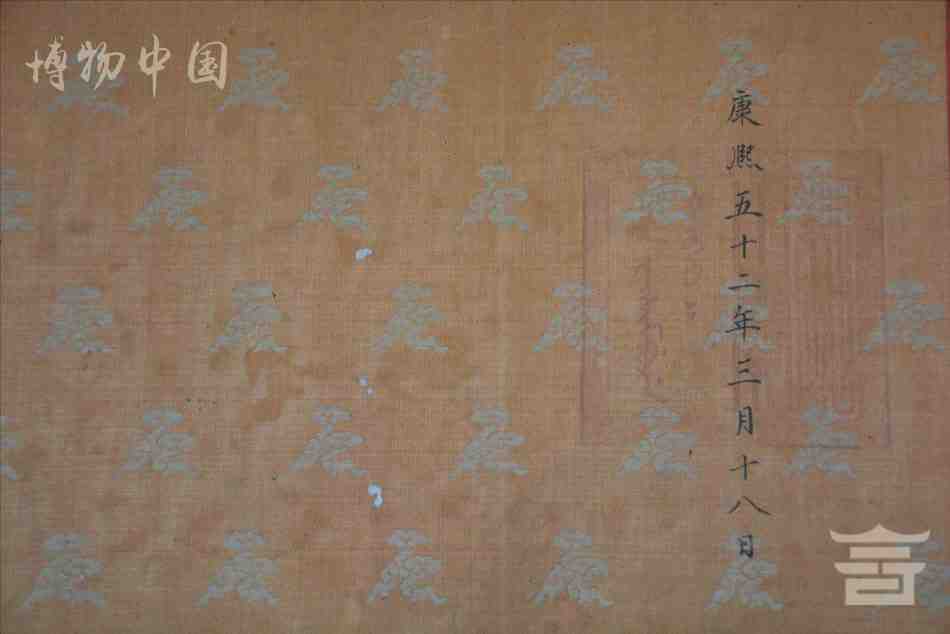 博物中国
康熙五十二年三月十八日